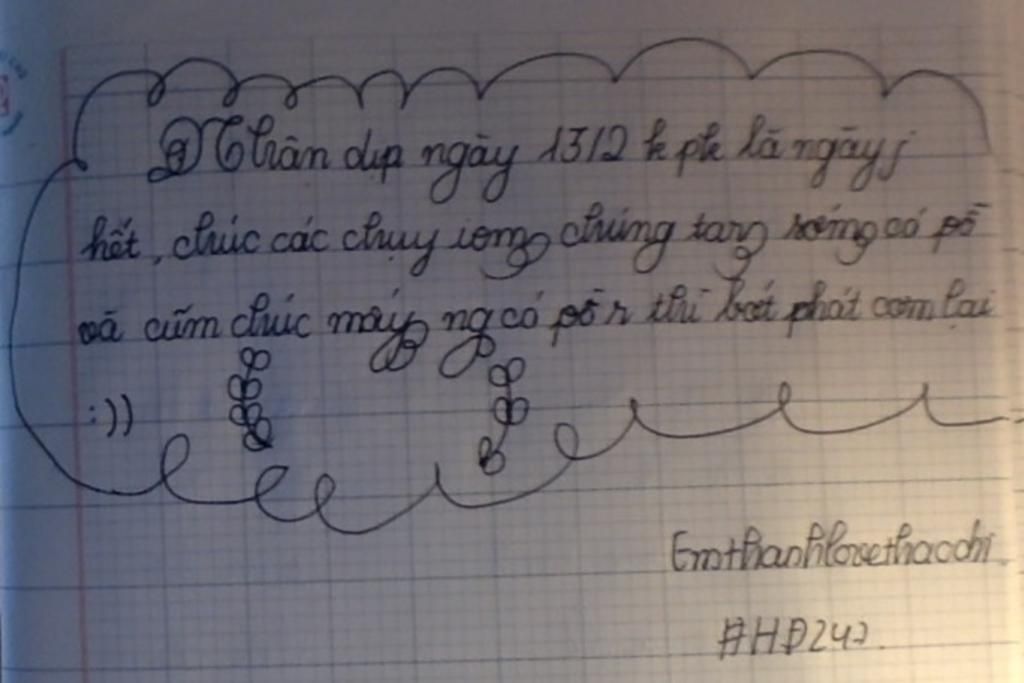 Nhân dịp ngày 1312 k pk là ngày j
hết, chúc các chụy iem chúng ta sớm có pồ
và cũm chúc mấy ng có pồ r thì bớt phát cơm lại
:))
Emthanhlovethacchi
#HĐ242